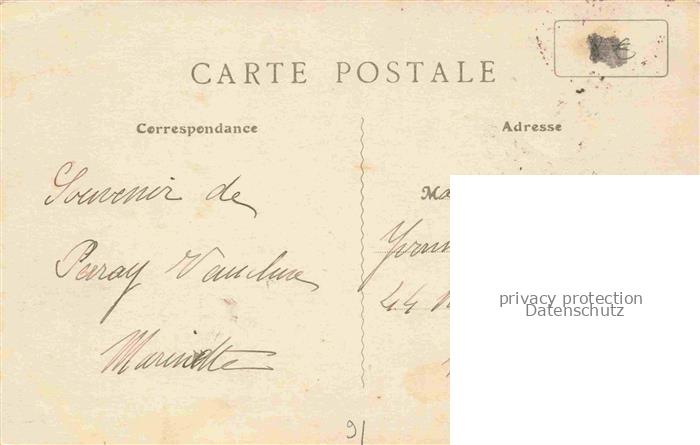 CARTE POSTALE
Correspondance
Adresse
Souvenir de
Peray Vaucluse
44
privacy protection
Datenschutz
91